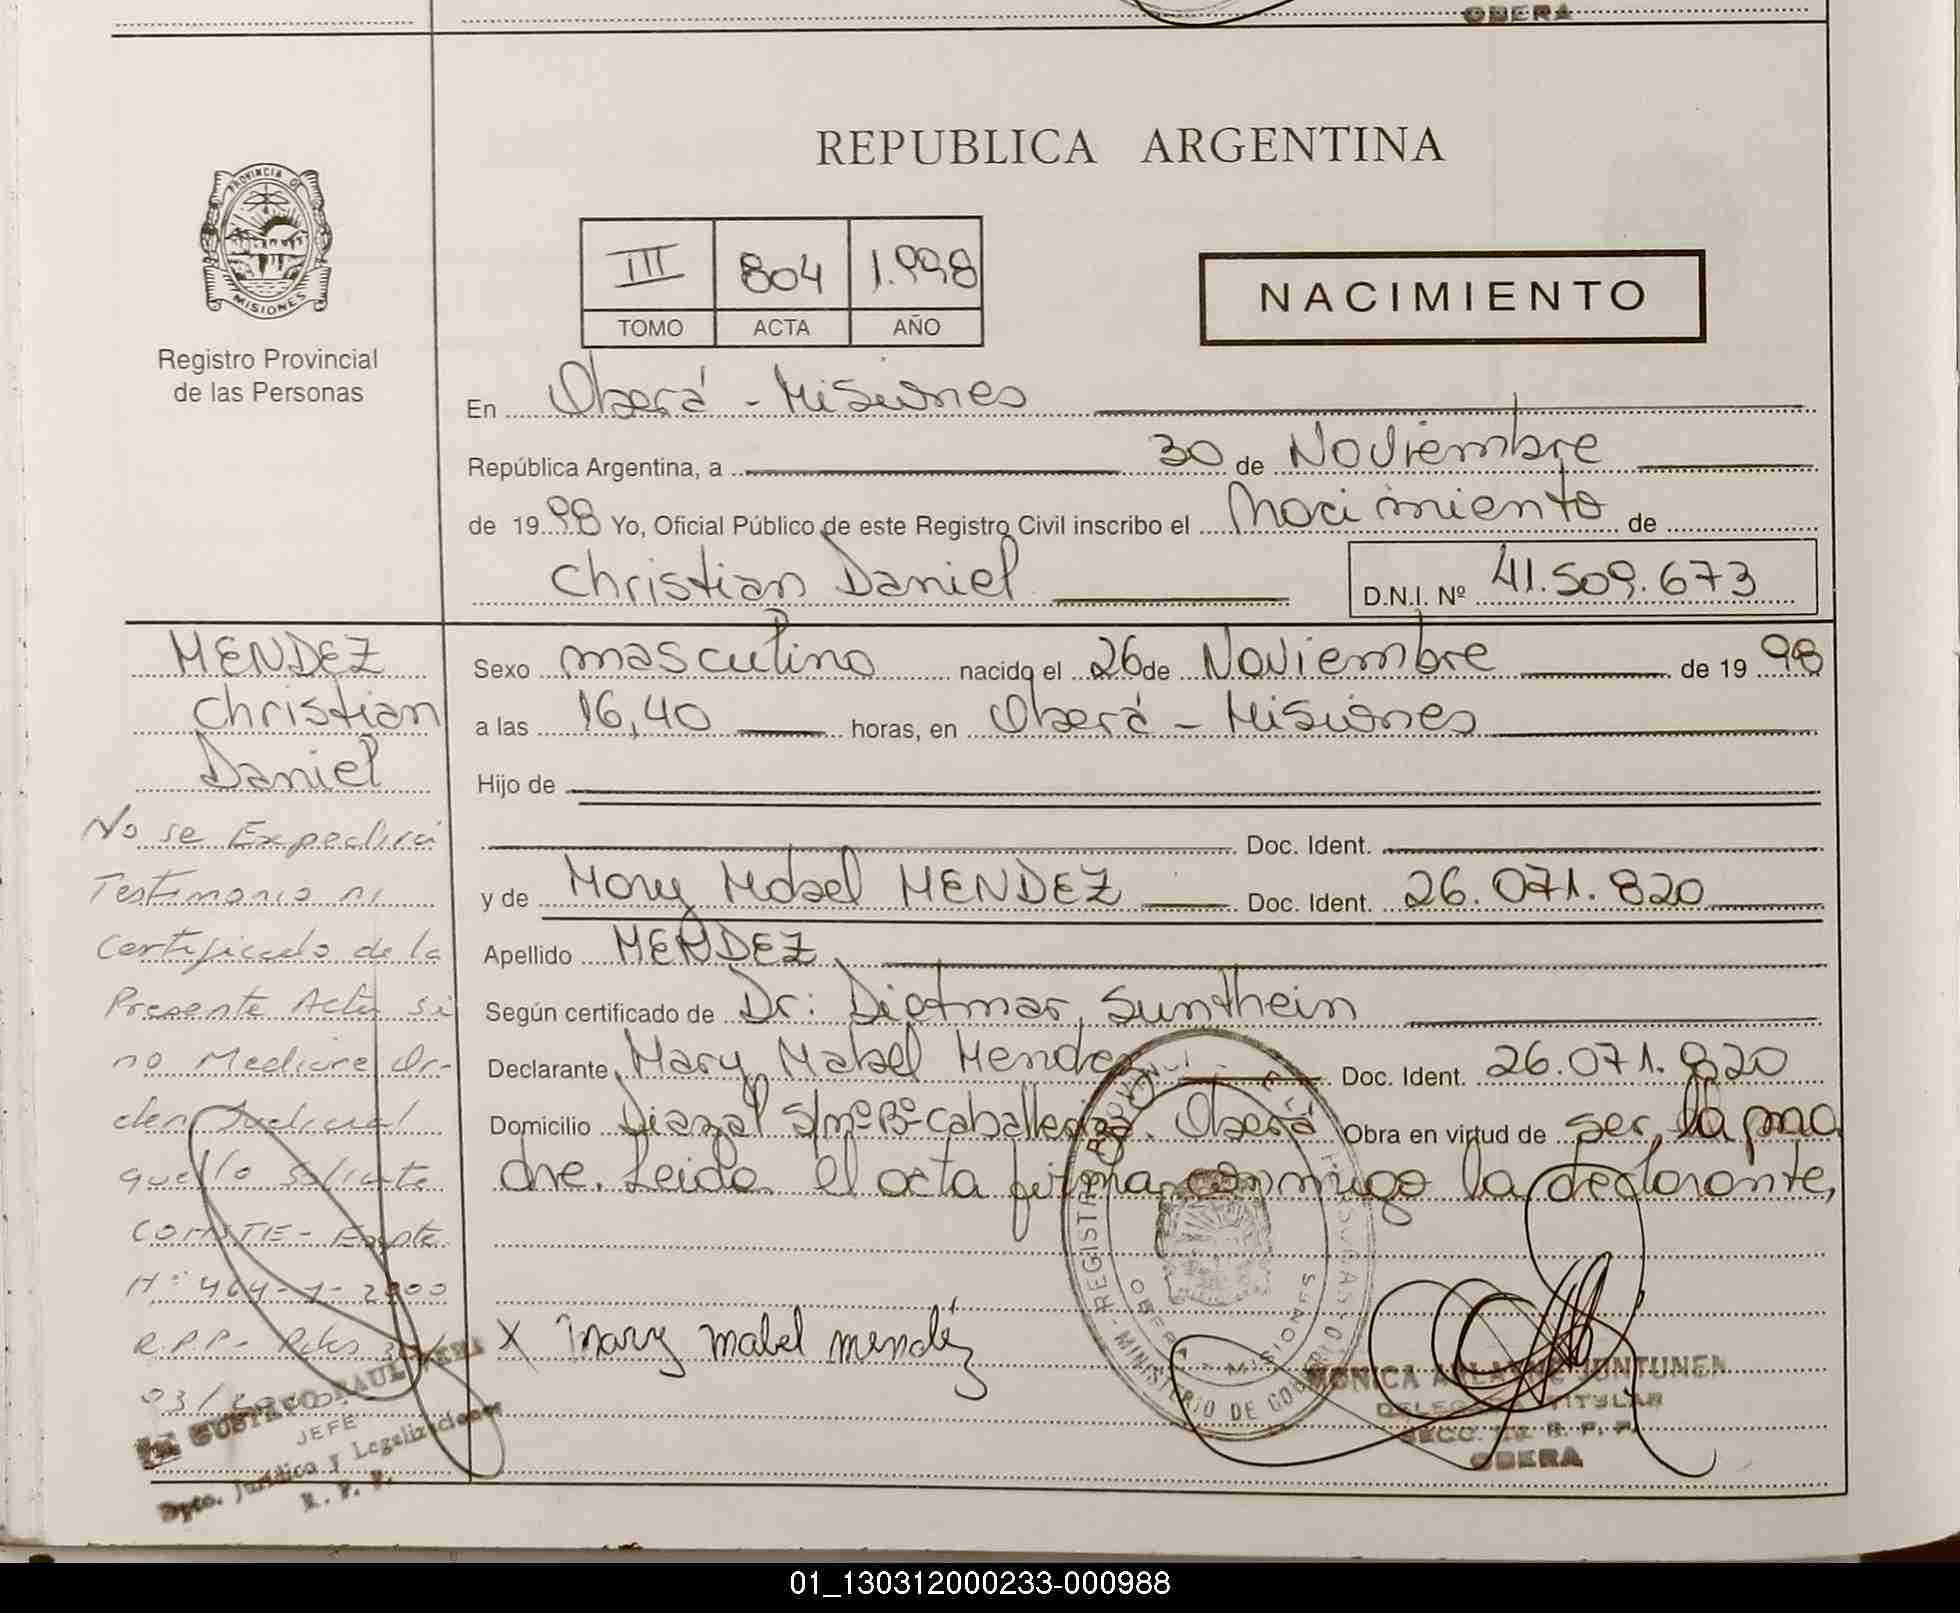 OBERA
REPUBLICA ARGENTINA
PROVINCIA DE
MISIONES
Registro Provincial
de las Personas
III 804 1.998
TOMO ACTA AÑO
NACIMIENTO
En Oberá - Misiones
República Argentina, a 30 de Noviembre
de 1998 Yo, Oficial Público de este Registro Civil inscribo el Nacimiento de
Christian Daniel D.N.I. Nº 41.509.673
MENDEZ
Christian
Daniel
No se Expedirá
Testimonio ni
Certificado de la
Presente Acta si
no Mediare Or-
den Judicial
que lo Solicite
CONSTE - Expte
Nº 464-1-2000
R.P.P.
03/2000
JEFE
Dpto. Jurídico y Legalizaciones
R. P. P.
Sexo masculino nacido el 26 de Noviembre de 1998
a las 16,40 horas, en Oberá - Misiones
Hijo de
Doc. Ident.
y de Mary Mabel MENDEZ Doc. Ident. 26.071.820
Apellido MENDEZ
Según certificado de Dr: Dietmar Sunthein
Declarante Mary Mabel Mendez Doc. Ident. 26.071.820
Domicilio S/nº Bº Caballeriza. Oberá Obra en virtud de ser la ma
dre. Leida el acta firma conmigo la declarante,
X Mary mabel mendéz
REGISTRO PROVINCIAL DE LAS PERSONAS
MINISTERIO DE GOBIERNO
OBERA - MISIONES
MONICA JUNTUNEN
DELEGADA TITULAR
SECC. R. P. P.
OBERA
01_130312000233-000988